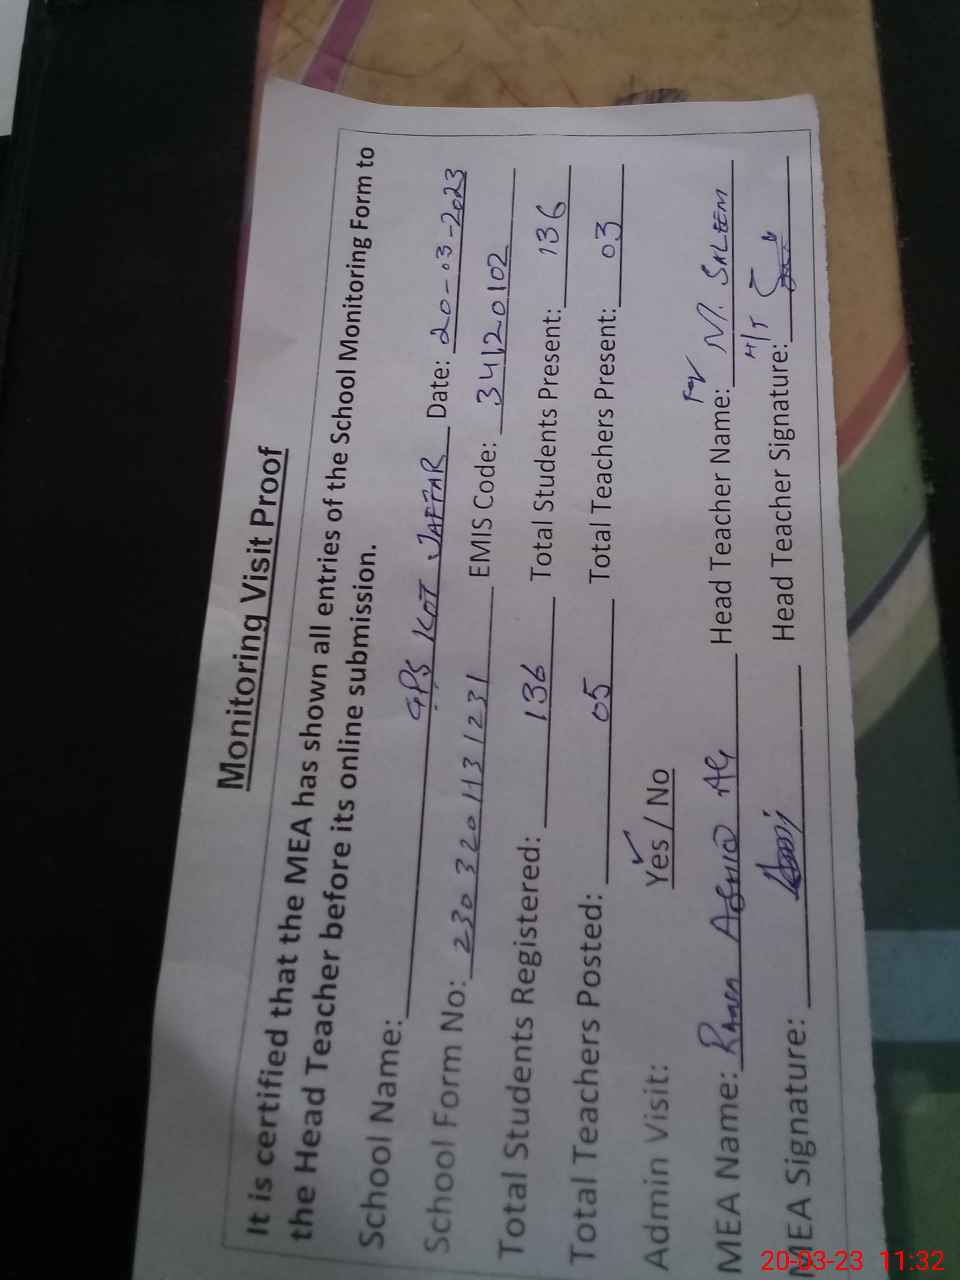 Monitoring Visit Proof
It is certified that the MEA has shown all entries of the School Monitoring Form to
the Head Teacher before its online submission.
School Name: GPS KOT JAFFAR Date: 20-03-2023
School Form No: 2303201131231 EMIS Code: 34120102
Total Students Registered: 136 Total Students Present: 136
Total Teachers Posted: 05 Total Teachers Present: 03
Admin Visit: Yes / No
MEA Name: Head Teacher Name: For M. SALEEM
MEA Signature: Head Teacher Signature: H/T
20-03-23 11:32